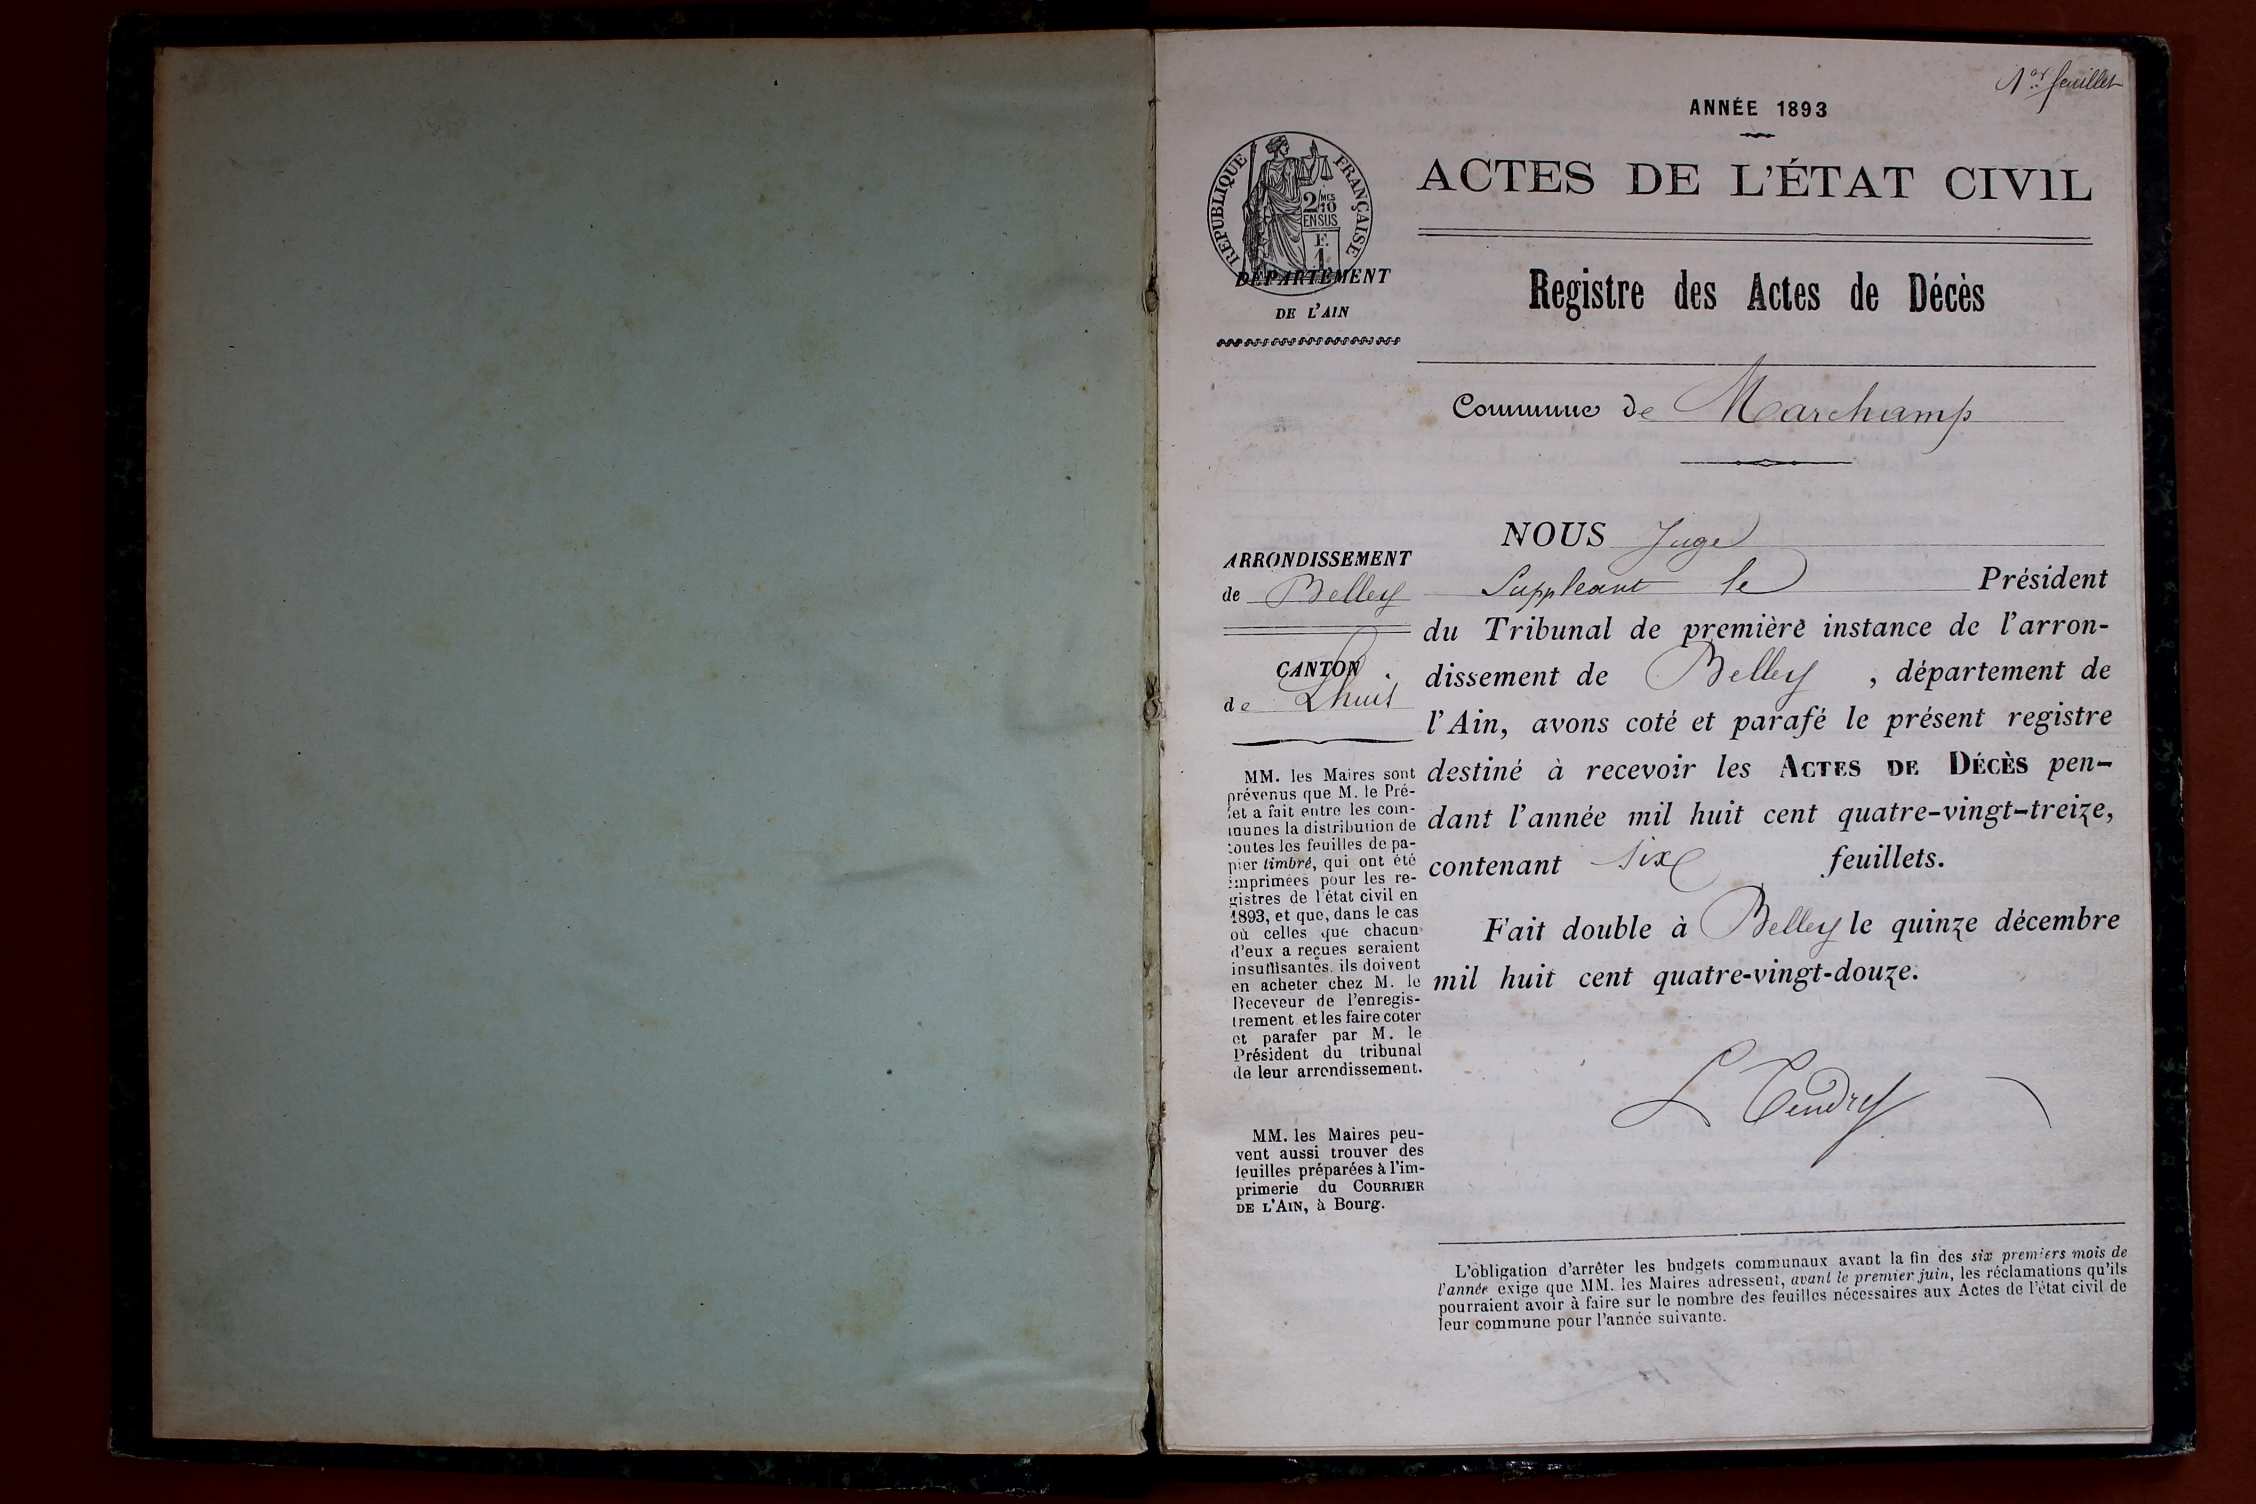 1er feuillet
ANNÉE 1893
ACTES DE L'ÉTAT CIVIL
RÉPUBLIQUE FRANÇAISE
2/10 MES
EN SUS
F.
1
DÉPARTEMENT
DE L'AIN
Registre des Actes de Décès
Commune de Marchamp
ARRONDISSEMENT
de Belley
CANTON
de Lhuis
MM. les Maires sont
prévenus que M. le Pré-
fet a fait entre les com-
munes la distribution de
toutes les feuilles de pa-
pier timbré, qui ont été
imprimées pour les re-
gistres de l'état civil en
1893, et que, dans le cas
où celles que chacun
d'eux a reçues seraient
insuffisantes, ils doivent
en acheter chez M. le
Receveur de l'enregis-
trement et les faire coter
et parafer par M. le
Président du tribunal
de leur arrondissement.
MM. les Maires peu-
vent aussi trouver des
feuilles préparées à l'im-
primerie du COURRIER
DE L'AIN, à Bourg.
NOUS Juge
Suppleant le Président
du Tribunal de première instance de l'arron-
dissement de Belley, département de
l'Ain, avons coté et parafé le présent registre
destiné à recevoir les ACTES DE DÉCÈS pen-
dant l'année mil huit cent quatre-vingt-treize,
contenant six feuillets.
Fait double à Belley le quinze décembre
mil huit cent quatre-vingt-douze.
L'obligation d'arrêter les budgets communaux avant la fin des six premiers mois de
l'année exige que MM. les Maires adressent, avant le premier juin, les réclamations qu'ils
pourraient avoir à faire sur le nombre des feuilles nécessaires aux Actes de l'état civil de
leur commune pour l'année suivante.